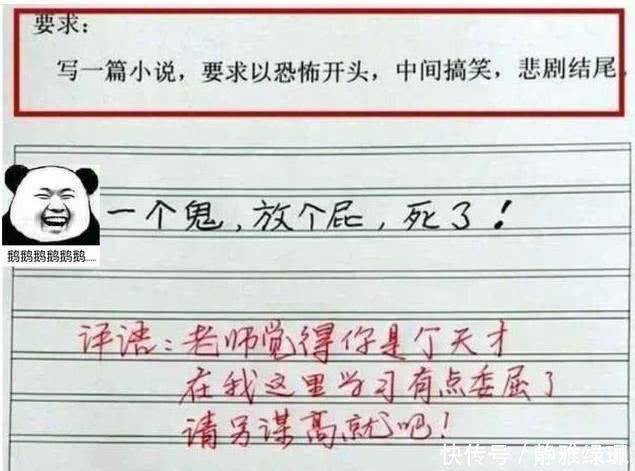 要求：
写一篇小说，要求以恐怖开头，中间搞笑，悲剧结尾，
一个鬼，放个屁，死了！
鹅鹅鹅鹅鹅鹅……
评语：老师觉得你是个天才
在我这里学习有点委屈了
请另谋高就吧！
快传号／静雅绿珮